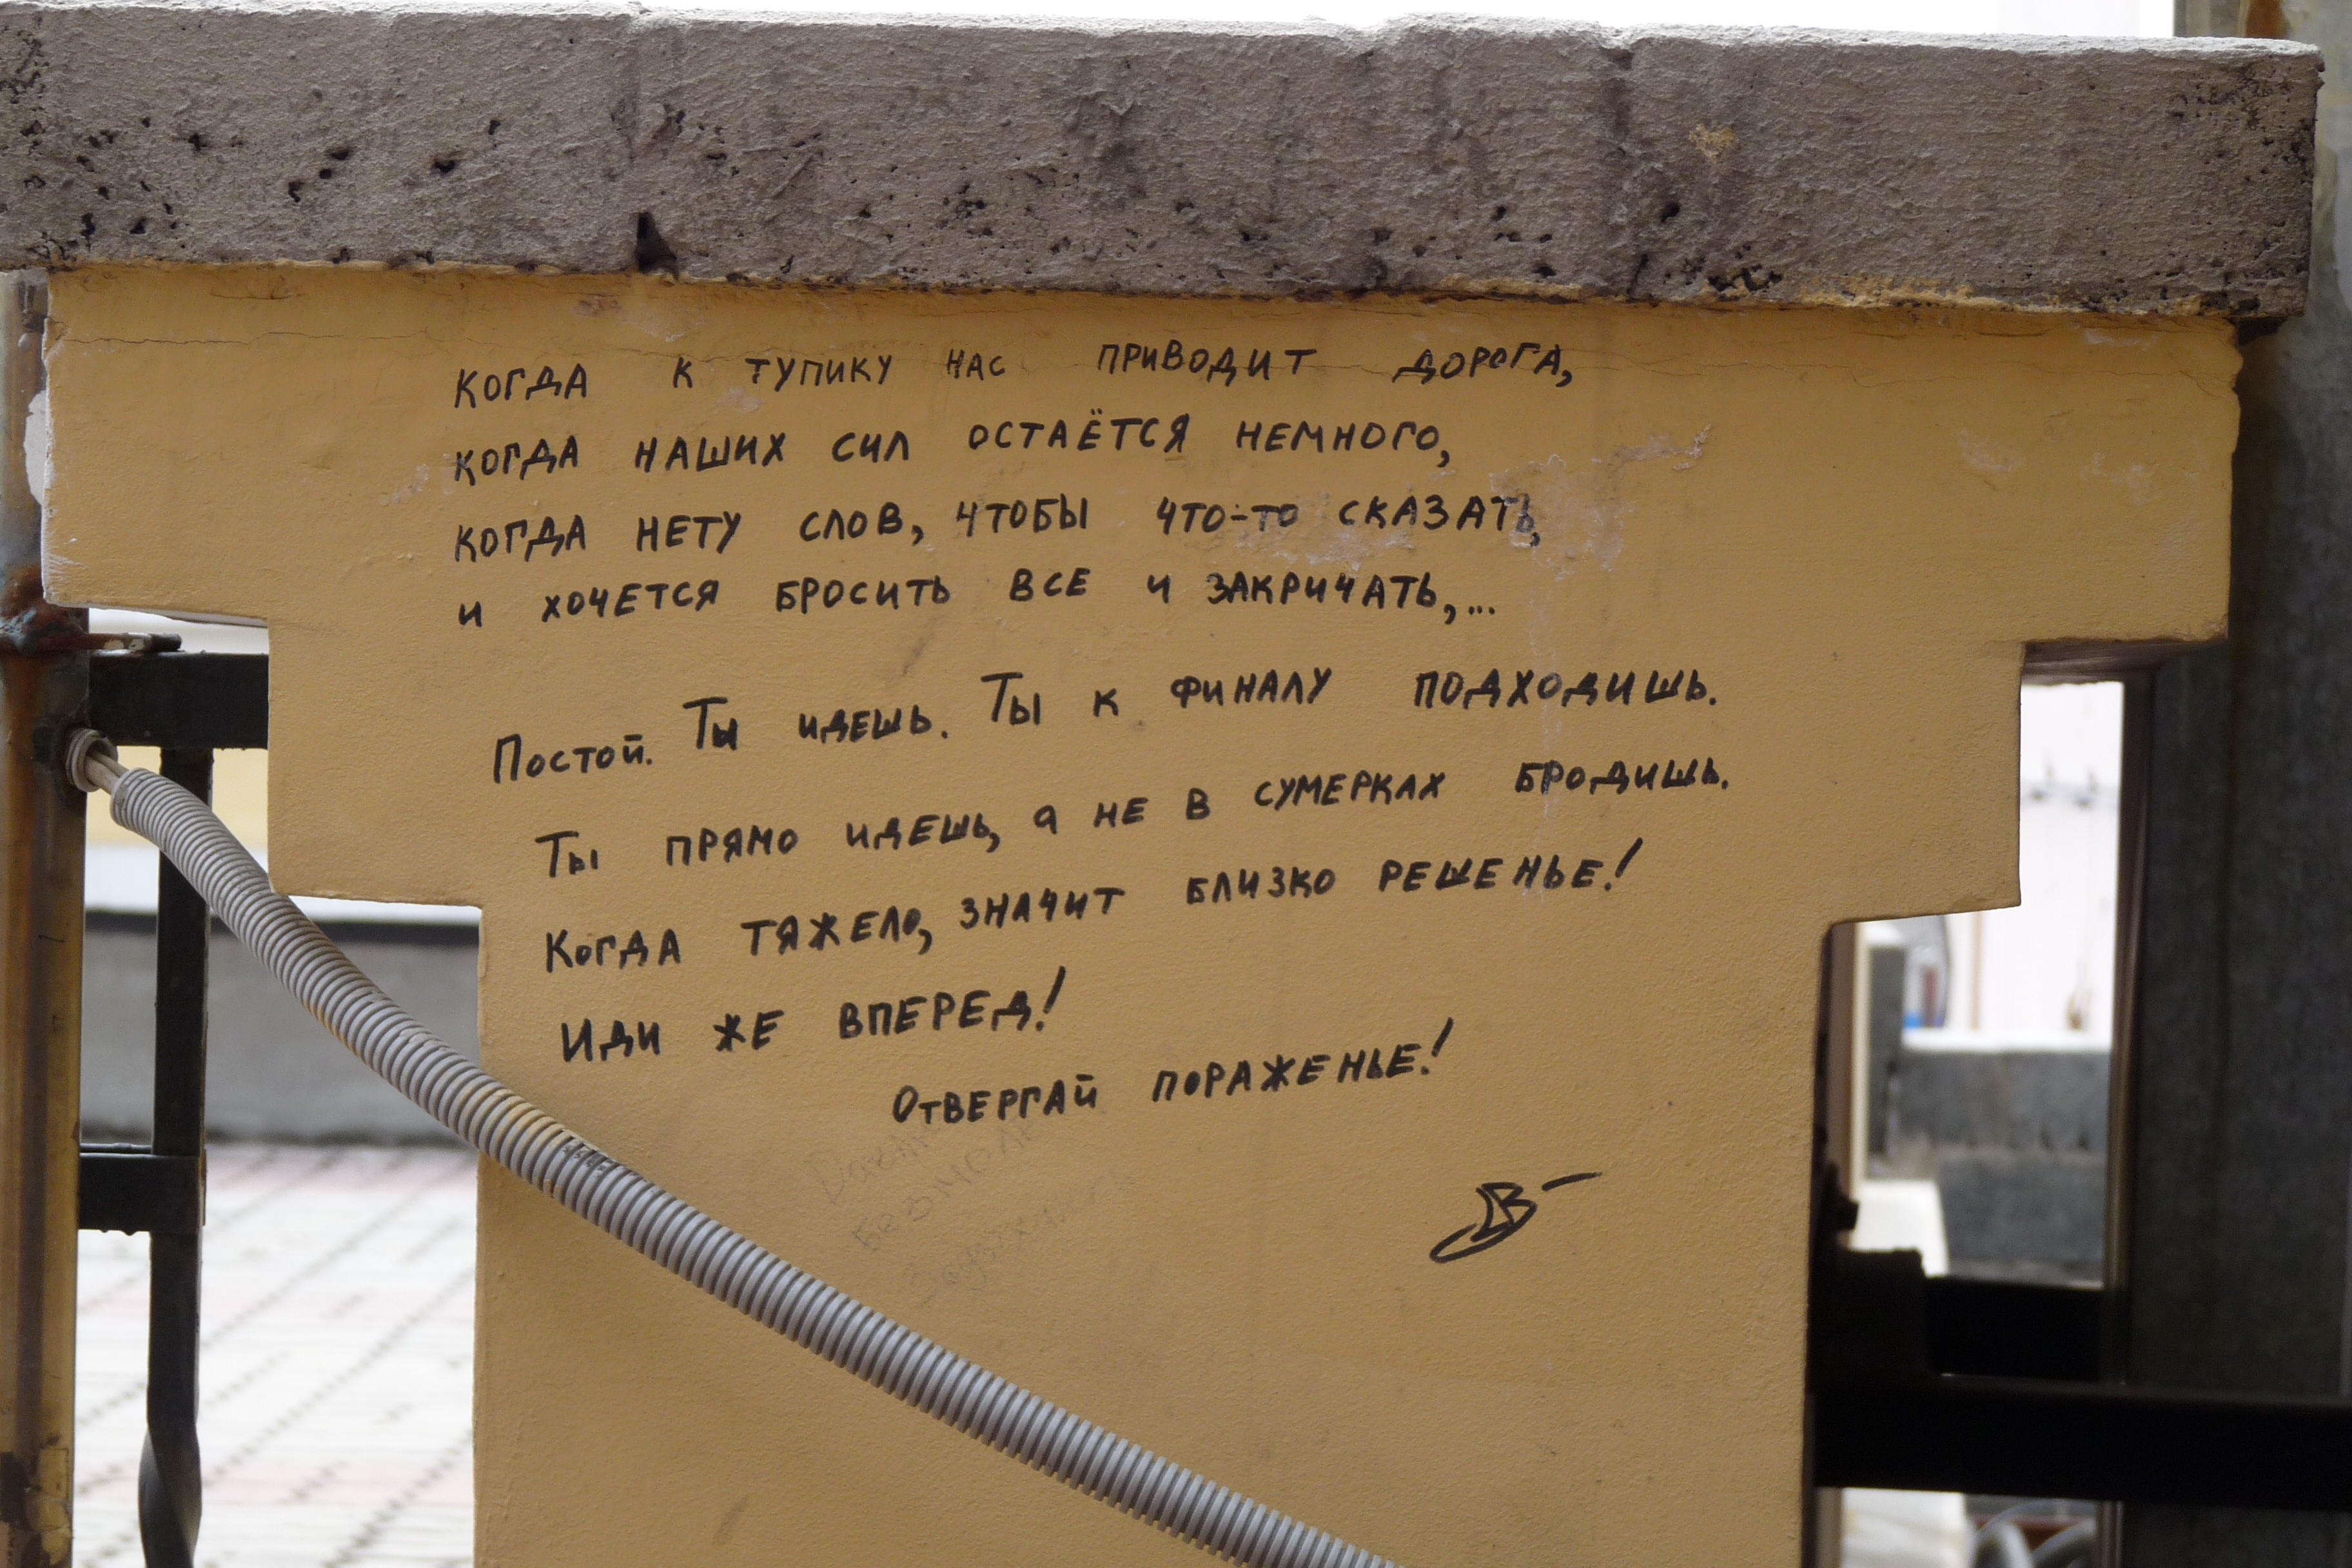 когда к тупику нас приводит дорога,
когда наших сил остаётся немного,
когда нету слов, чтобы что-то сказать,
и хочется бросить все и закричать,...
Постой. Ты идешь. Ты к финалу подходишь.
Ты прямо идешь, а не в сумерках бродишь.
Когда тяжело, значит близко решенье!
Иди же вперед!
Отвергай пораженье!